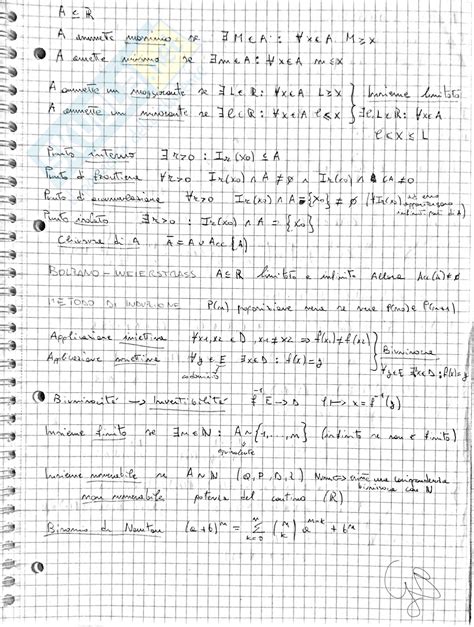 A ⊆ ℝ
A ammette massimo se ∃ M ∈ A : ∀x ∈ A M ≥ x
A amette minimo se ∃ m ∈ A : ∀x ∈ A m ≤ x
A ammette un maggiorante se ∃ L ∈ ℝ : ∀x ∈ A L ≥ x } Insieme limitato
A ammette un minorante se ∃ l ∈ ℝ : ∀x ∈ A l ≤ x } ∃ l, L ∈ ℝ : ∀x ∈ A
l ≤ x ≤ L
Punto interno ∃ r > 0 : Ir(x0) ⊆ A
Punto di frontiera ∀r > 0 Ir(x0) ∩ A ≠ ∅ ∧ Ir(x0) ∩ CA ≠ ∅
Punto di accumulazione ∀r > 0 Ir(x0) ∩ A - {x0} ≠ ∅ (∀ Ir(x0) appartengono
infiniti punti di A)
Punto isolato ∃ r > 0 : Ir(x0) ∩ A = {x0}
Chiusura di A Ā = A ∪ Acc(A)
BOLZANO - WEIERSTRASS A ⊆ ℝ limitato e infinito Allora Acc(A) ≠ ∅
METODO DI INDUZIONE P(n) proposizione vera se vere P(n0) e P(n+1)
Applicazione iniettiva ∀x1, x2 ∈ D, x1 ≠ x2 ⇒ f(x1) ≠ f(x2) } Biunivoca
Applicazione ∀y ∈ E ∃x ∈ D : f(x) = y } ∀y ∈ E ∃!x ∈ D : f(x) = y
codominio
Biunivocità → Invertibilità f⁻¹ E → D x = f⁻¹(y)
Insieme finito se ∃ n ∈ ℕ : A ~ {1, ..., n} (infinito se non è finito)
equipotente
Insieme numerabile se A ~ ℕ (Q, P, D, Z) corrispondenza
biunivoca con ℕ
non numerabile potenza del continuo (ℝ)
Binomio di Newton (a+b)ⁿ = Σ k=0 n (n k) aⁿ⁻ᵏ + bᵏ